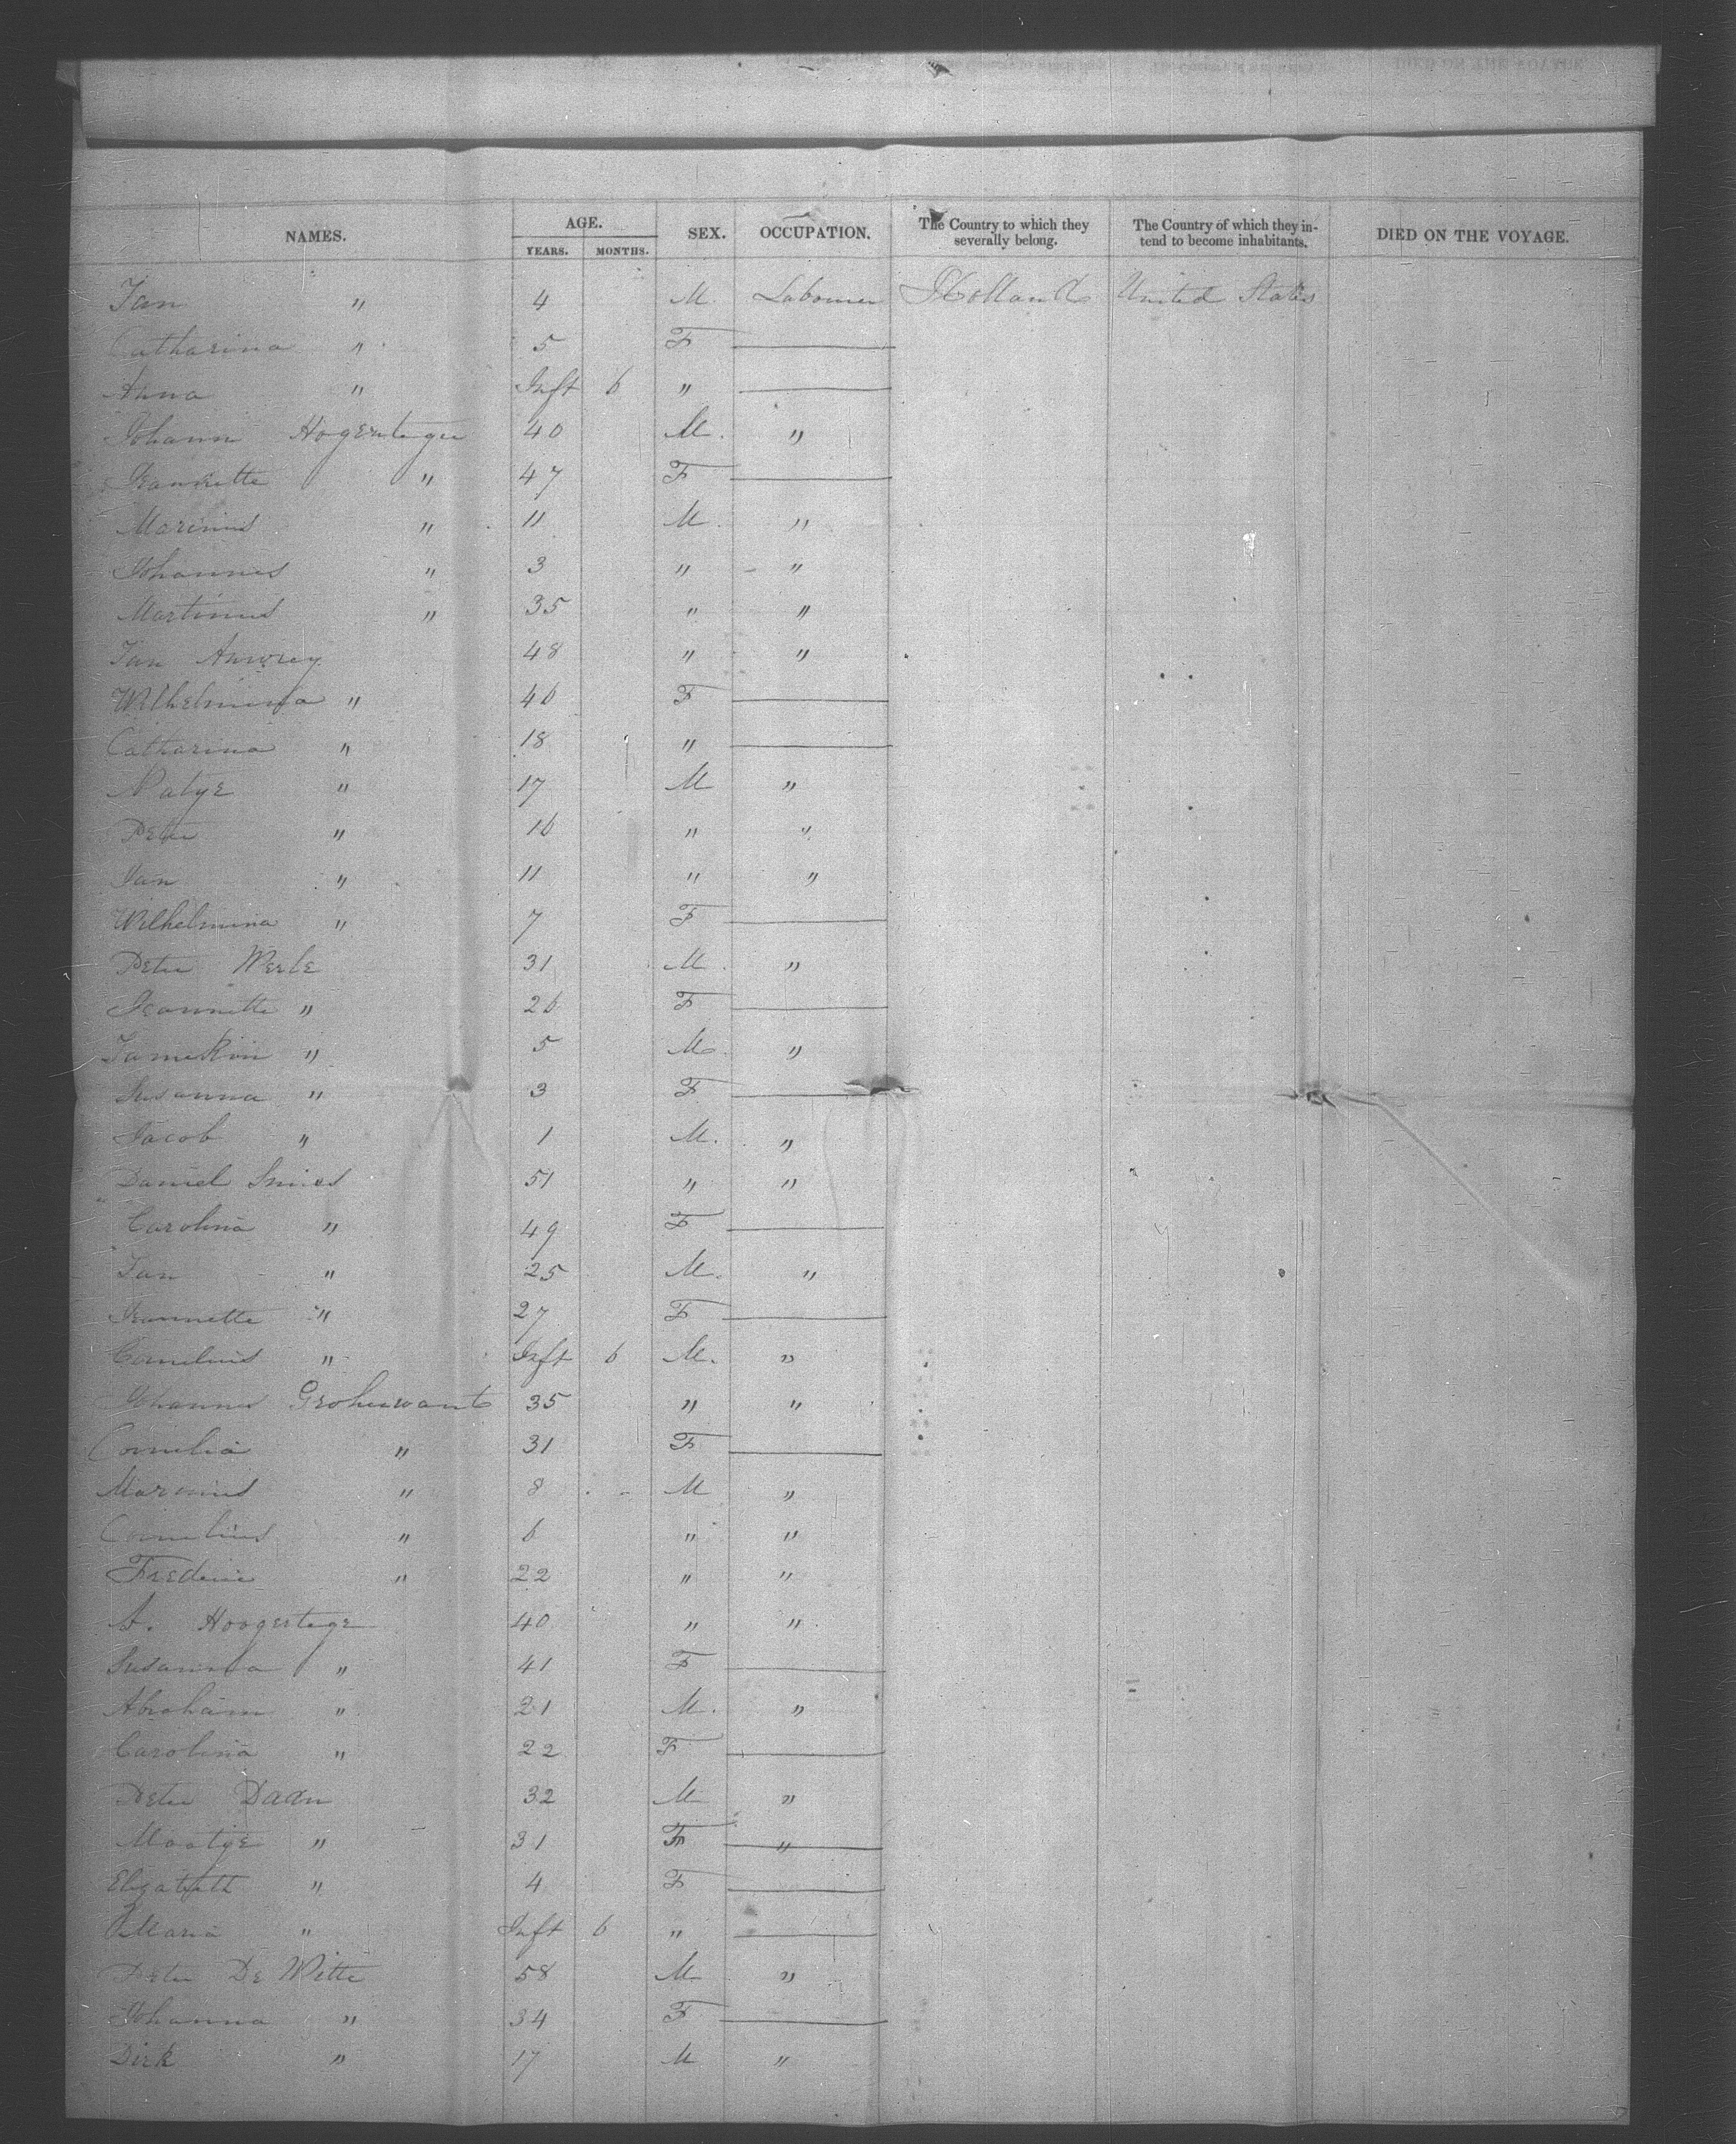 NAMES. AGE. SEX. OCCUPATION. The Country to which they severally belong. The Country of which they intend to become inhabitants. DIED ON THE VOYAGE.
YEARS. MONTHS.
Jan " 4 M. Labourer Holland United States
Catharina " 5 F ———
Anna " Inft 6 " ———
Johann Hogerteger 40 M. "
Jeannette " 47 F ———
Marinus " 11 M. "
Johannes " 3 " "
Martinus " 35 " "
Jan 48 " "
Wilhelmina " 46 F ———
Catharina " 18 " ———
" 17 M "
Peter " 16 " "
Jan " 11 " "
Wilhelmina " 7 F ———
Peter Werle 31 M. "
Jeannette " 26 F ———
" 5 M. "
Susanna " 3 F ———
Jacob " 1 M. "
Daniel 51 " "
Carolina " 49 F ———
Jan " 25 M. "
Jeannette " 27 F ———
Cornelius " Inft 6 M. "
Johannes 35 " "
Cornelia " 31 F ———
Marinus " 8 M "
Cornelius " 6 " "
" 22 " "
A. Hoogertege 40 " "
Susanna " 41 F ———
Abraham " 21 M. "
Carolina " 22 F ———
Peter Daan 32 M "
" 31 F "
Elizabeth " 4 F ———
Maria " Inft 6 " ———
Peter De Witte 58 M "
Johanna " 34 F ———
Dirk " 17 M "